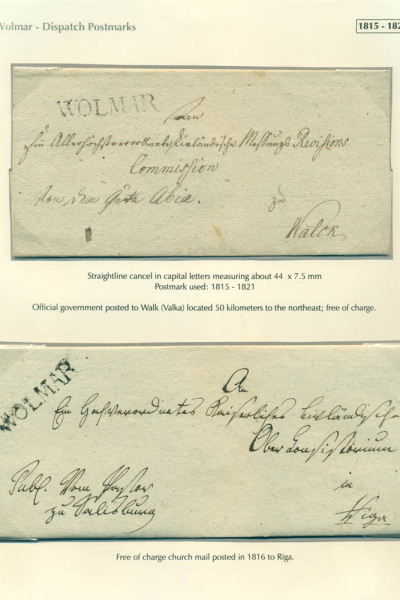 Wolmar - Dispatch Postmarks
1815 - 182
WOLMAR
Commission
von dem Gute Abia.
zu
Walck
Straightline cancel in capital letters measuring about 44 x 7.5 mm
Postmark used: 1815 - 1821
Official government posted to Walk (Valka) located 50 kilometers to the northeast; free of charge.
WOLMAR
An
Ein Kaiserliches Livländisch
Ober Consistorium
Publ. Vom Pastor
in
zu Salisburg
Riga
Free of charge church mail posted in 1816 to Riga.